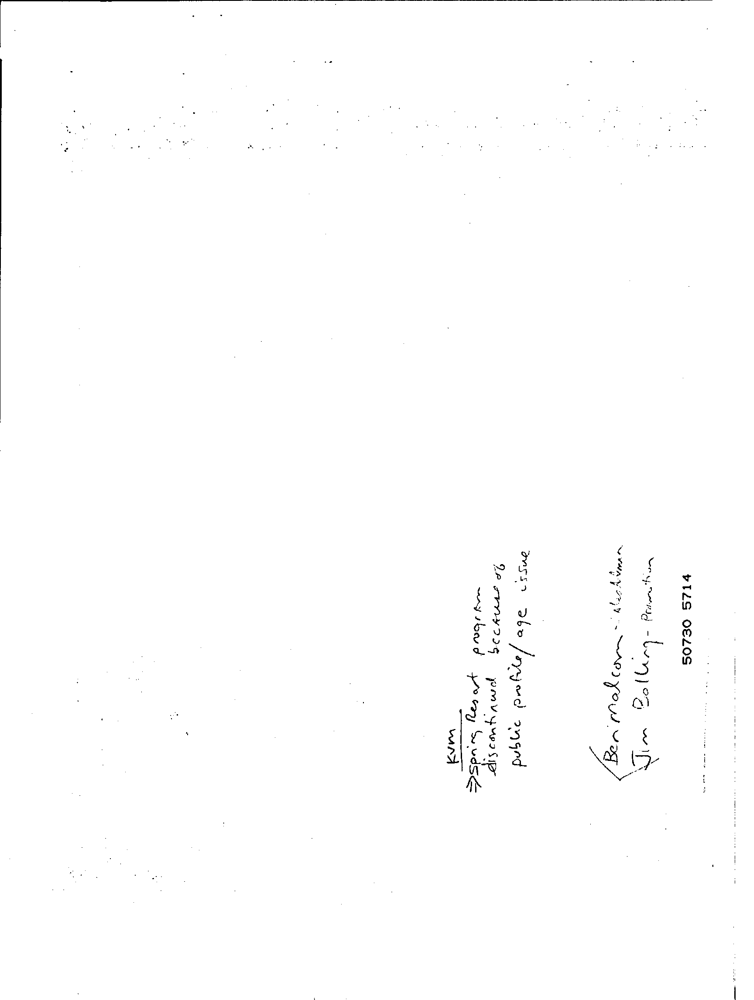 KVM
⇒ Spring Resort program
discontinued because of
public profile/age issue
Ben Malcom -
Jim Bolling - Promotion
50730 5714